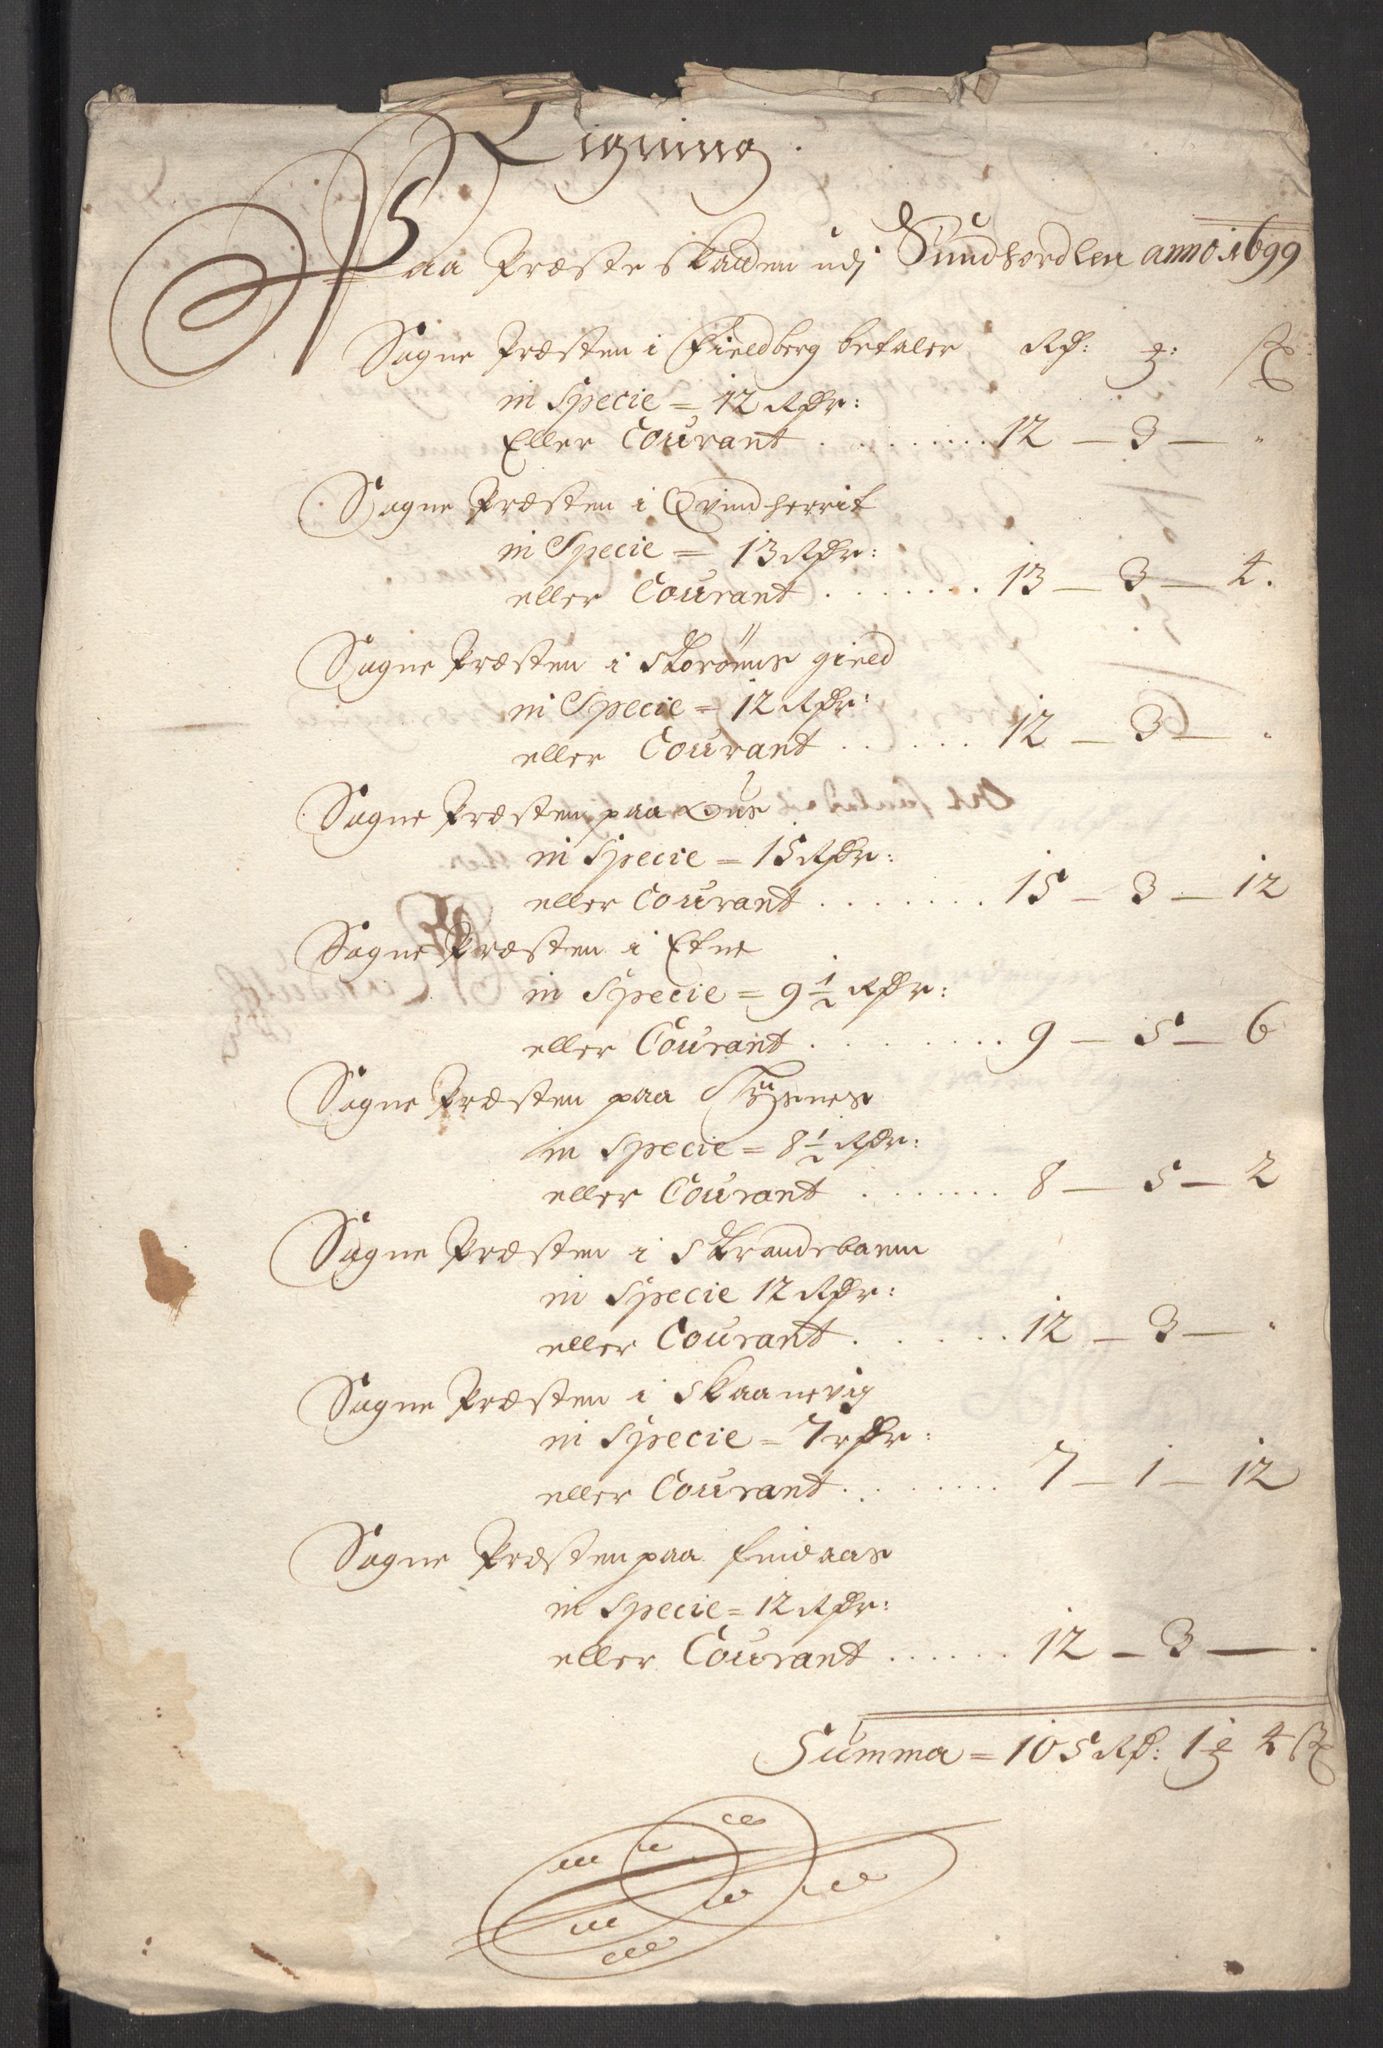 Ligning.
Paa Præste skatten udj Sundhordlen anno 1699
Sogne Præsten i Fieldberg betaler Rd: ʒ: ß
in Specie = 12 Rdr:
Eller Courant . . . . . . . . . 12 — 3 — "
Sogne Præsten i Qvindherrit
in Specie = 13 Rdr:
eller Courant . . . . . . . 13 — 3 — 4.
Sogne Præsten i Storøens gield
in Specie = 12 Rdr:
eller Courant . . . . . . 12 — 3 — "
Sogne Præsten paa Ous
in Specie = 15 Rdr:
eller Courant . . . . . . . 15 — 3 — 12
Sogne Præsten i Etne
in Specie = 9 1/2 Rdr:
eller Courant . . . . . . . . 9 — 5 — 6
Sogne Præsten paa Tÿsnes
in Specie = 8 1/2 Rdr:
eller Courant . . . . . . . 8 — 5 — 2
Sogne Præsten i Strandebarm
in Specie 12 Rdr:
eller Courant . . . . . . 12 — 3 — "
Sogne Præsten i Skaanevig
in Specie = 7 rdr:
eller Courant . . . . . . . . 7 — 1 — 12
Sogne Præsten paa Finaas
in Specie = 12 Rdr:
eller Courant . . . . . . 12 — 3 — .
Summa = 105 Rd: 1 ʒ 4 ß